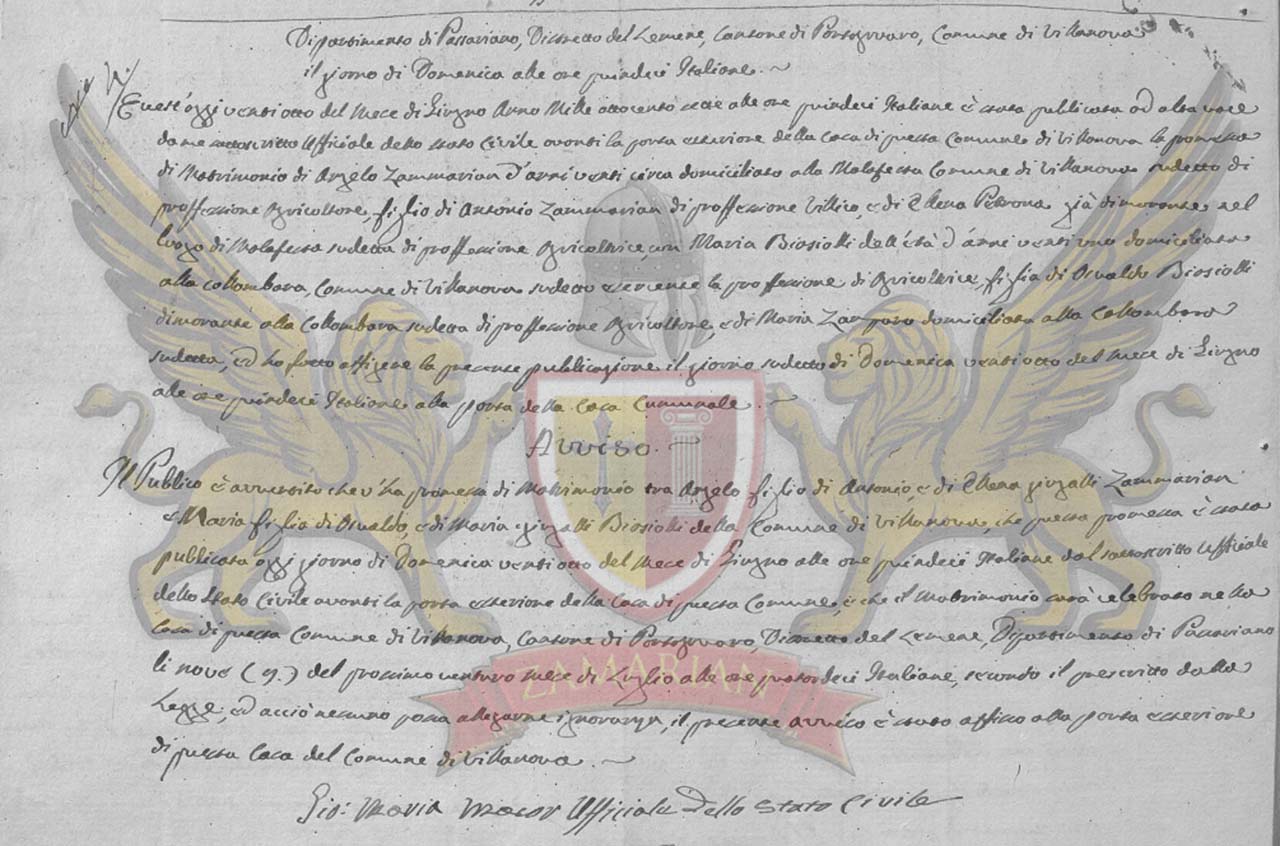 Dipartimento di Passariano, Distretto del Lemene, Cantone di Portogruaro, Comune di Villanova
il giorno di Domenica alle ore quindeci Italiane.
Quest'oggi ventiotto del Mese di Giugno Anno Mille ottocento sette alle ore quindeci Italiane è stata publicata ad alta voce
da me sottoscritto Ufficiale dello stato Civile avanti la porta esteriore della Casa di questa Comune di Villanova la promessa
di Matrimonio di Angelo Zammarian d'anni venti circa domiciliato alla Malafesta Comune di Villanova sudetto di
proffessione Agricoltore, figlio di Antonio Zammarian di proffessione Villico, e di Ellena Petrona già dimorante nel
luogo di Malafesta sudetta di proffessione Agricoltrice, con Maria Biasiolli dell'età d'anni ventiuno domiciliata
alla Collombara, Comune di Villanova sudetto esercente la proffessione di Agricoltrice, figlia di Osvaldo Biasiolli
dimorante alla Collombara sudetta di proffessione Agricoltore, e di Maria Zamparo domiciliata alla Collombara
sudetta, ed ho fatto affigere la presente publicazione il giorno sudetto di Domenica ventiotto del Mese di Giugno
alle ore quindeci Italiane alla porta della Casa Cummunale.
Avviso.
Il Publico è avvertito che v'ha promessa di Matrimonio tra Angelo figlio di Antonio, e di Ellena giugalli Zammarian
e Maria figlia di Osvaldo, e di Maria giugalli Biasiolli della Comune di Villanova, che questa promessa è stata
publicata oggi giorno di Domenica ventiotto del Mese di Giugno alle ore quindeci Italiane dal sottoscritto Ufficiale
dello Stato Civile avanti la porta esteriore della Casa di questa Comune, e che il Matrimonio sarà celebrato nella
Casa di questa Comune di Villanova, Cantone di Portogruaro, Distretto del Lemene, Dipartimento di Passariano
li nove (9.) del prossimo venturo Mese di Luglio alle ore quatordeci Italiane, secondo il prescritto dalla
Legge, ed acciò nessuno possa allegarne ignoranza, il presente avviso è stato affisso alla porta esteriore
di questa Casa del Comune di Villanova.
Gio: Maria Ufficiale dello Stato Civile
ZAMARIAN